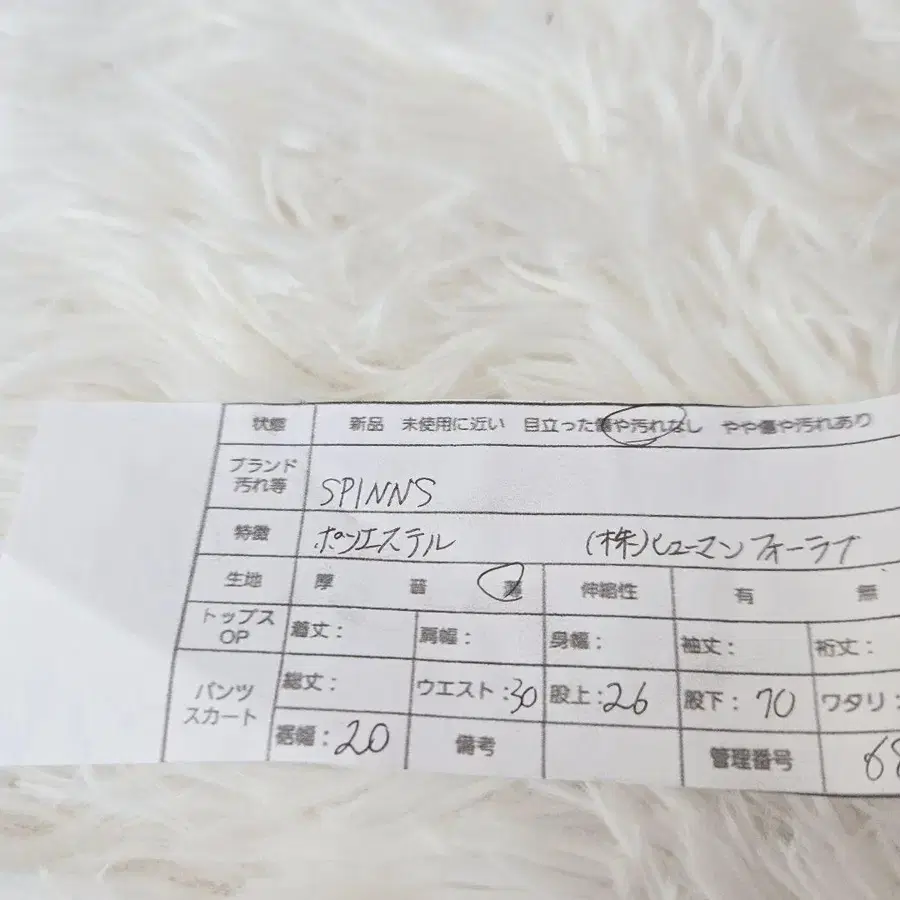 状態 新品 未使用に近い 目立った傷や汚れなし やや傷や汚れあり
ブランド
汚れ等
SPINNS
特徴 ポリエステル (株)ヒューマンフォーラブ
生地 厚 普 薄 伸縮性 有 無
トップス
OP
着丈: 肩幅: 身幅: 袖丈: 裄丈:
パンツ
スカート
総丈: ウエスト:30 股上:26 股下:70 ワタリ:
裾幅:20 備考 管理番号